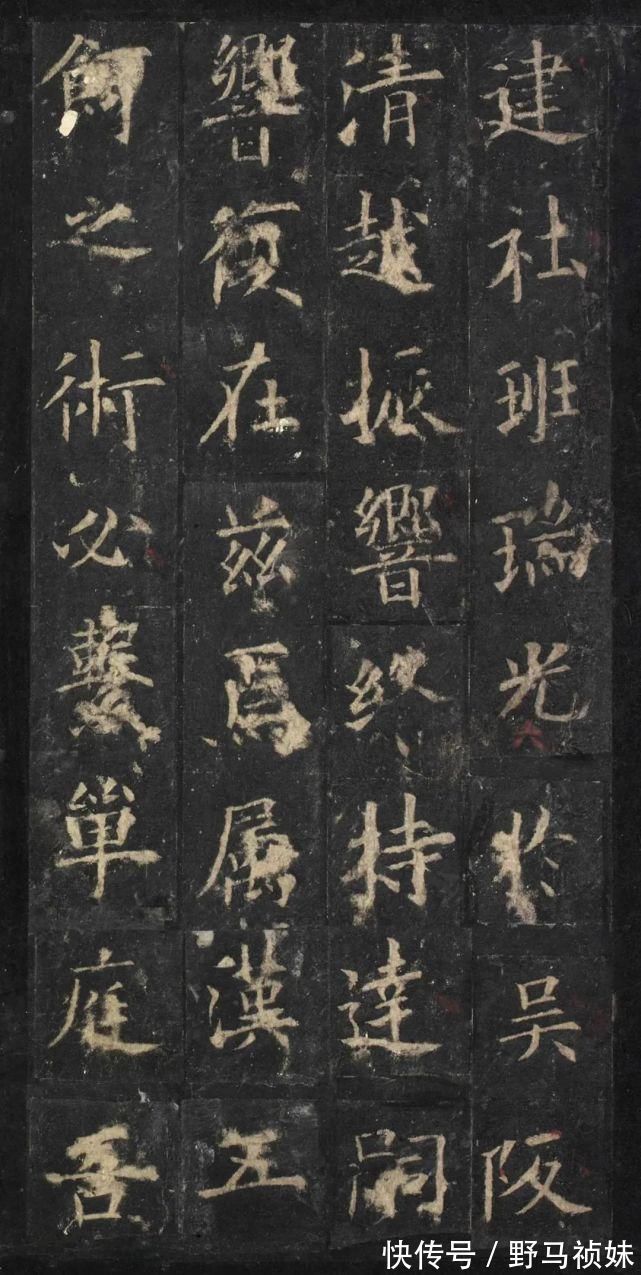 建社班瑞光於吴阪
清越振響終特達嗣
響復在兹焉屬漢五
餌之術必繫單庭吾
快传号/野马祯妹